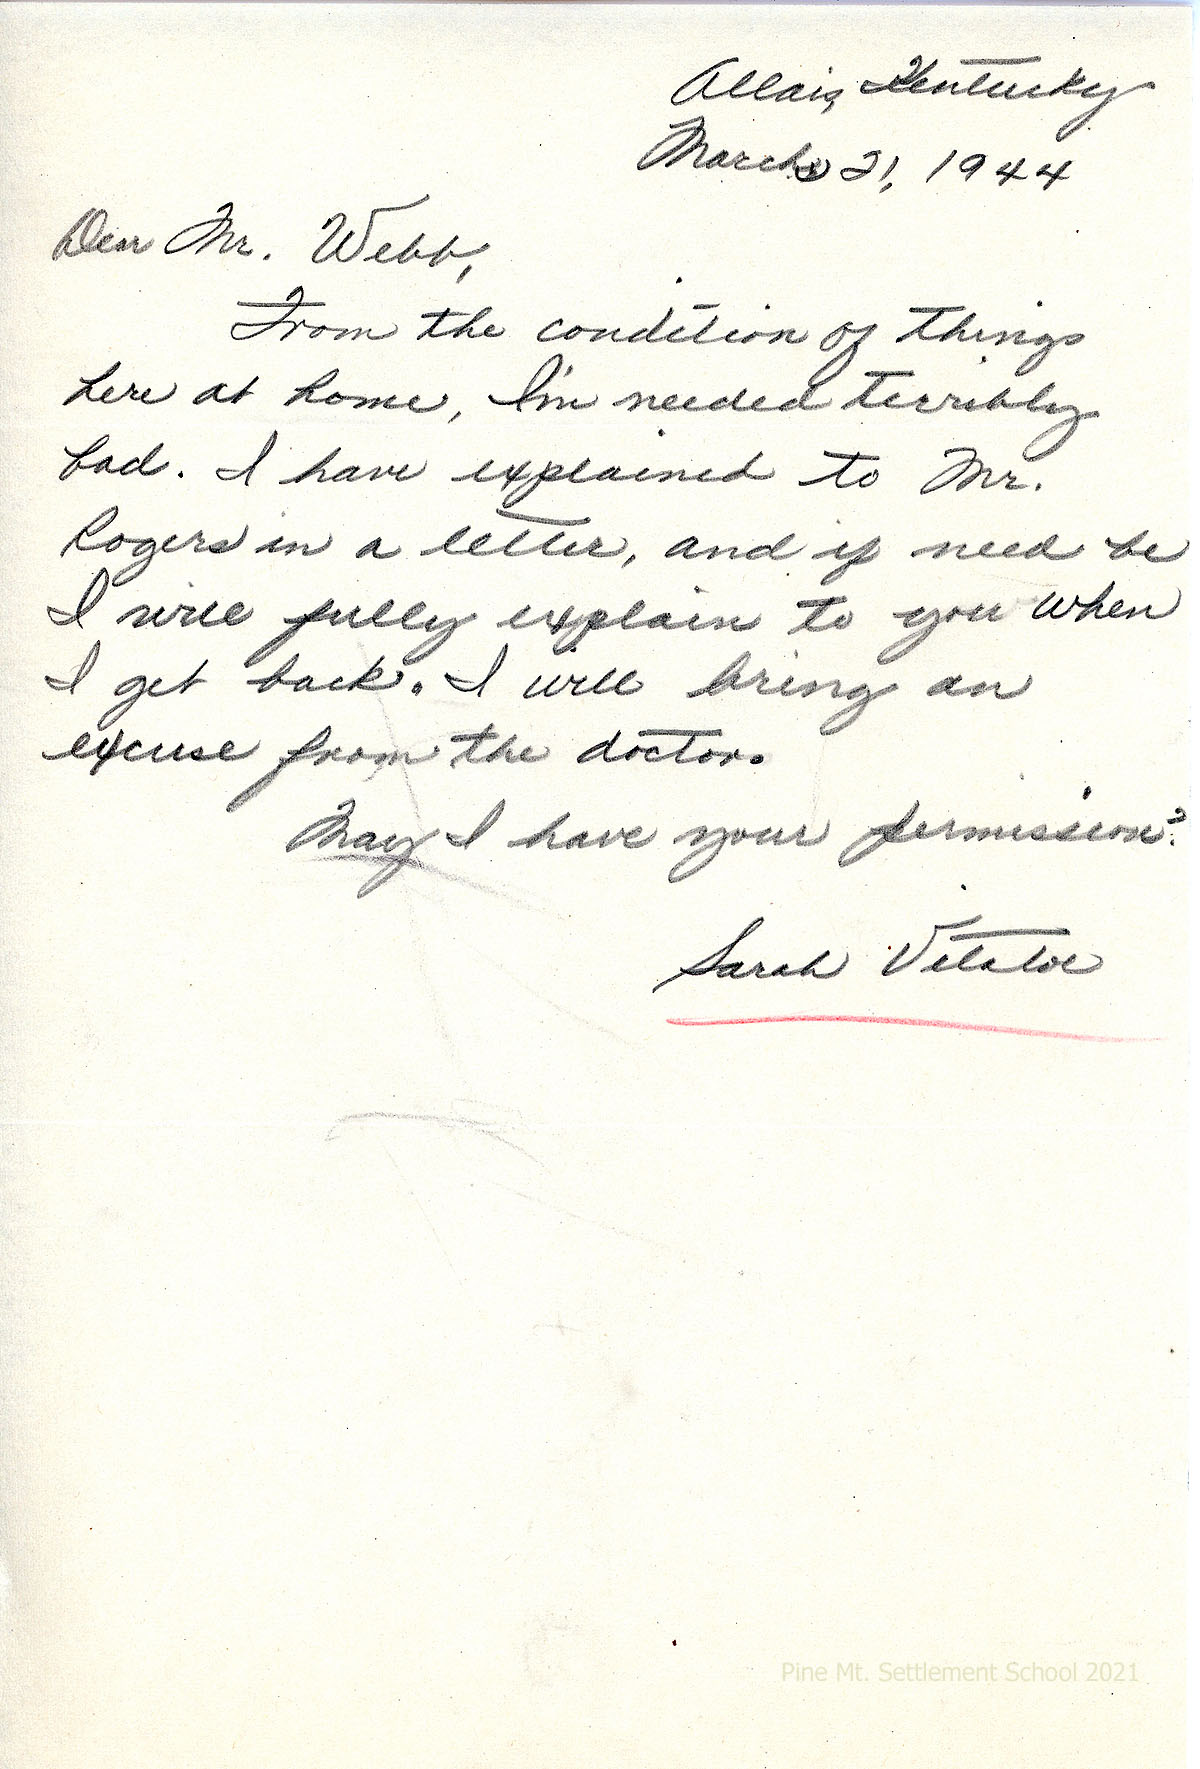 Allais, Kentucky
March 21, 1944
Dear Mr. Webb,
From the condition of things
here at home, I'm needed terribly
bad. I have explained to Mr.
Rogers in a letter, and if need be
I will fully explain to you when
I get back. I will bring an
excuse from the doctor.
May I have your permission?
Sarah Vitatoe
Pine Mt. Settlement School 2021